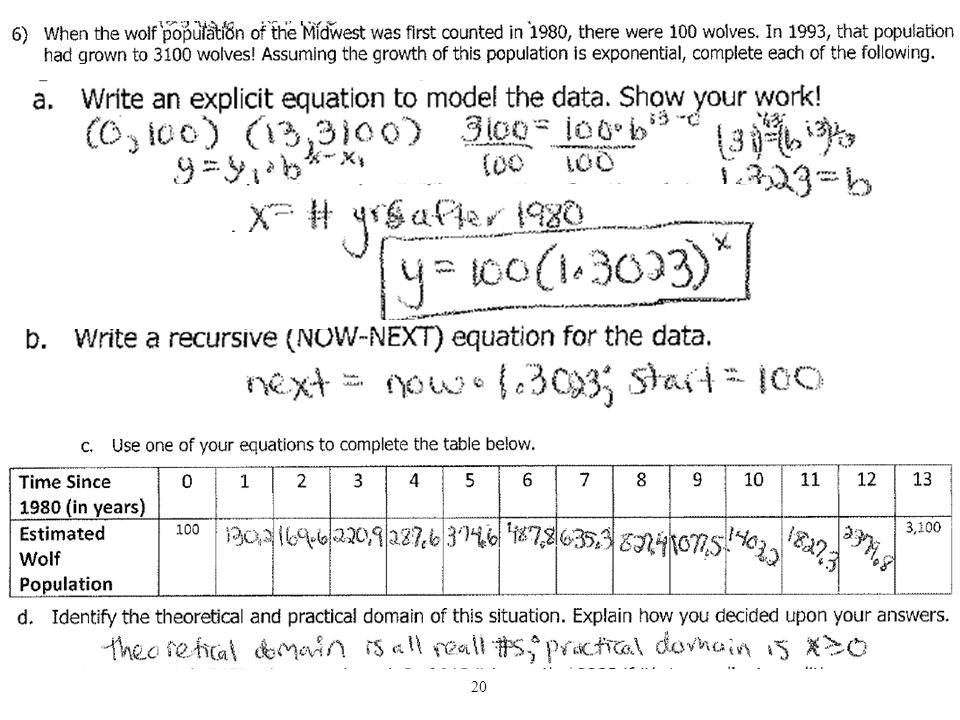 6) When the wolf population of the Midwest was first counted in 1980, there were 100 wolves. In 1993, that population
had grown to 3100 wolves! Assuming the growth of this population is exponential, complete each of the following.
a. Write an explicit equation to model the data. Show your work!
(0, 100) (13, 3100) 3100 = 100·b¹³⁻⁰
100 100
y = y₁·b^x-x₁
1.323 = b
x = # yrs after 1980
y = 100(1.3023)^x
b. Write a recursive (NOW-NEXT) equation for the data.
next = now · 1.3023; start = 100
c. Use one of your equations to complete the table below.
Time Since 1980 (in years) 0 1 2 3 4 5 6 7 8 9 10 11 12 13
Estimated Wolf Population 100 130.2 169.6 220.9 287.6 374.6 487.8 635.3 827.4 1077.5 1403.2 1827.3 2379.8 3,100
d. Identify the theoretical and practical domain of this situation. Explain how you decided upon your answers.
theoretical domain is all reall #s; practical domain is x≥0
20